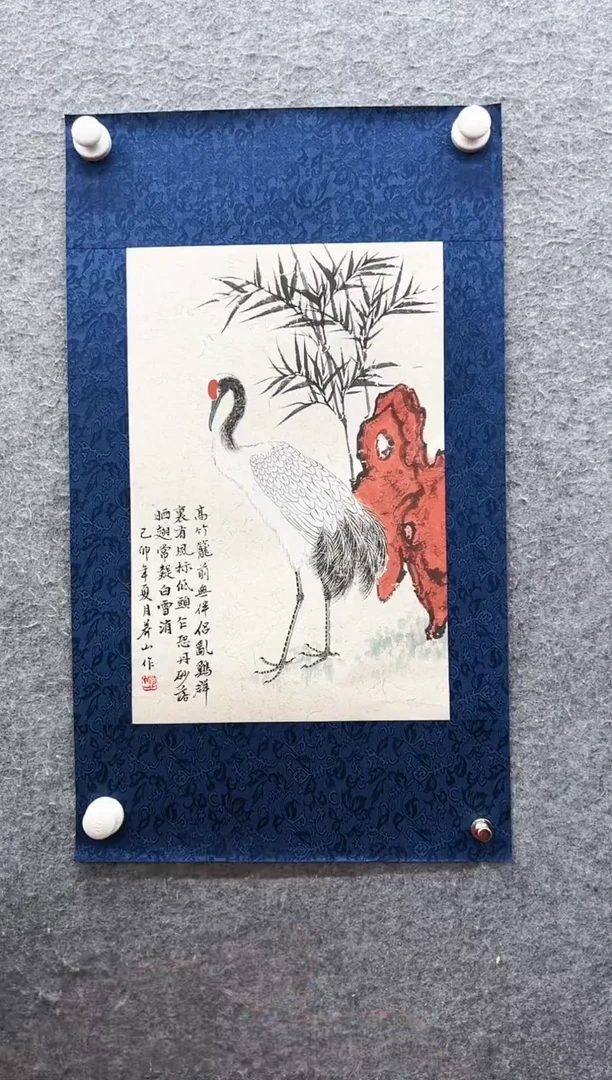 高竹籠前無伴侶亂鷄群
裏有風标低頭乍恐丹砂落
晒翅常疑白雪消
己卯年夏月山作